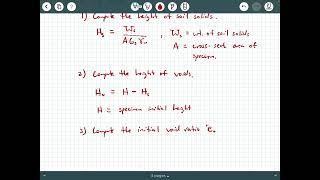 1) Compute the height of soil solids.
Hs = Ws / A Gs γw , Ws = wt. of soil solids
A = cross-sect. area of specimen.
2) Compute the height of voids.
Hv = H - Hs
H = specimen initial height
3) Compute the initial void ratio eo
3 pages